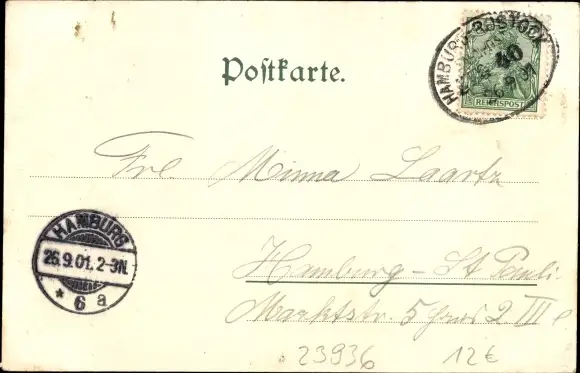 HAMBURG-ROSTOCK
REICHSPOST
Postkarte.
Frl. Minna Laartz
HAMBURG
26.9.01. 2-3N.
* 6 a
Hamburg - St Pauli
Marktstr. 5 Haus 2 III e
23936 12€